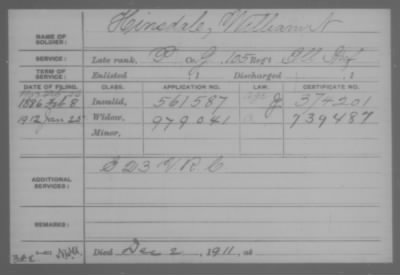 NAME OF SOLDIER: Hinsdale, William N
SERVICE: Late rank, P Co. G, 105 Reg't Ill Inf
TERM OF SERVICE: Enlisted , 1 Discharged , 1
DATE OF FILING. CLASS. APPLICATION NO. LAW. CERTIFICATE NO.
1886 Feb 8 Invalid, 561587 J 374201
1912 Jan 25 Widow, 979041 739487
Minor,
ADDITIONAL SERVICES: C 23 V.R.C
REMARKS:
Died Dec 2, 1911, at